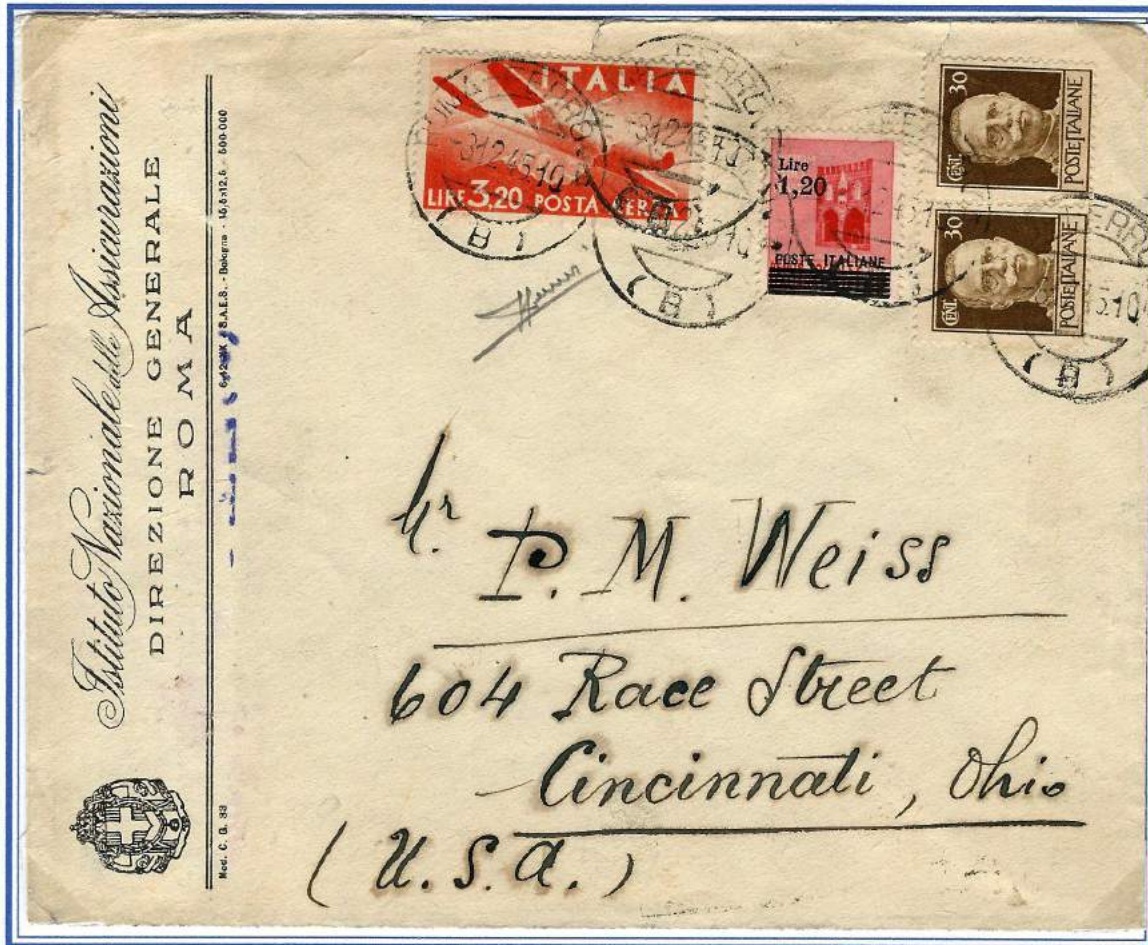 Istituto Nazionale delle Assicurazioni
DIREZIONE GENERALE
ROMA
Mod. C. G. 33
S.A.E.S. - Bologna - 15,5x12,5 - 500-000
ITALIA
LIRE 3,20 POSTA AEREA
Lire
1,20
POSTE ITALIANE
CENT. 30
POSTE ITALIANE
CENT. 30
POSTE ITALIANE
(B)
(B)
(B)
P. M. Weiss
604 Race Street
Cincinnati, Ohio
(U.S.A.)